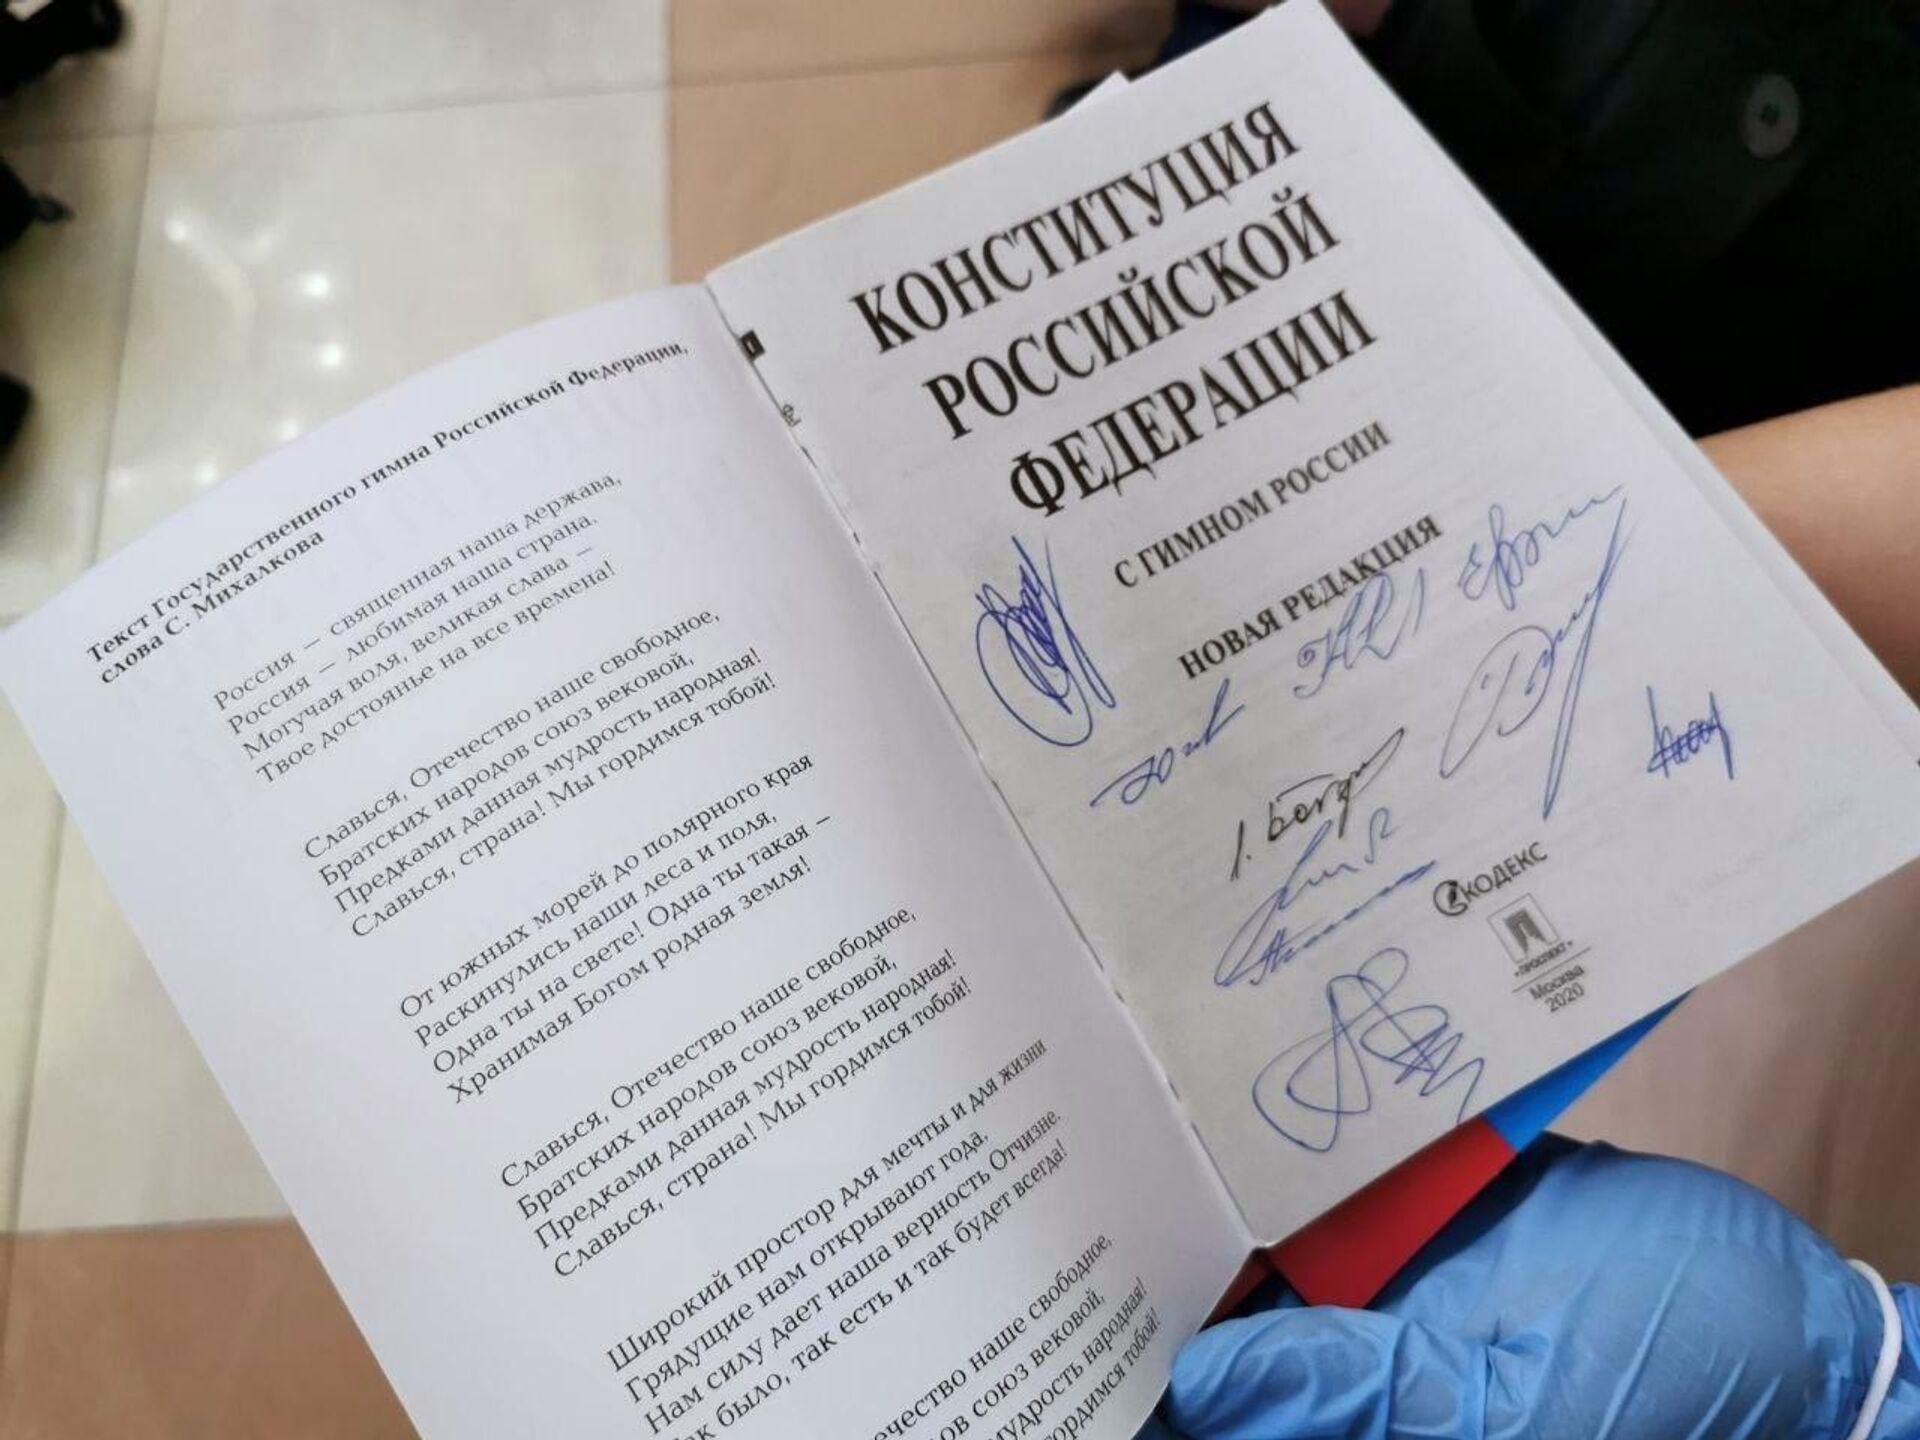 Текст Государственного гимна Российской Федерации,
слова С. Михалкова
Россия — священная наша держава,
Россия — любимая наша страна.
Могучая воля, великая слава —
Твое достоянье на все времена!
Славься, Отечество наше свободное,
Братских народов союз вековой,
Предками данная мудрость народная!
Славься, страна! Мы гордимся тобой!
От южных морей до полярного края
Раскинулись наши леса и поля,
Одна ты на свете! Одна ты такая —
Хранимая Богом родная земля!
Славься, Отечество наше свободное,
Братских народов союз вековой,
Предками данная мудрость народная!
Славься, страна! Мы гордимся тобой!
Широкий простор для мечты и для жизни
Грядущие нам открывают года.
Нам силу дает наша верность Отчизне.
было, так есть и так будет всегда!
наше свободное,
союз вековой,
народная!
тобой!
КОНСТИТУЦИЯ
РОССИЙСКОЙ
ФЕДЕРАЦИИ
С ГИМНОМ РОССИИ
НОВАЯ РЕДАКЦИЯ
КОДЕКС
•ПРОСПЕКТ•
Москва
2020